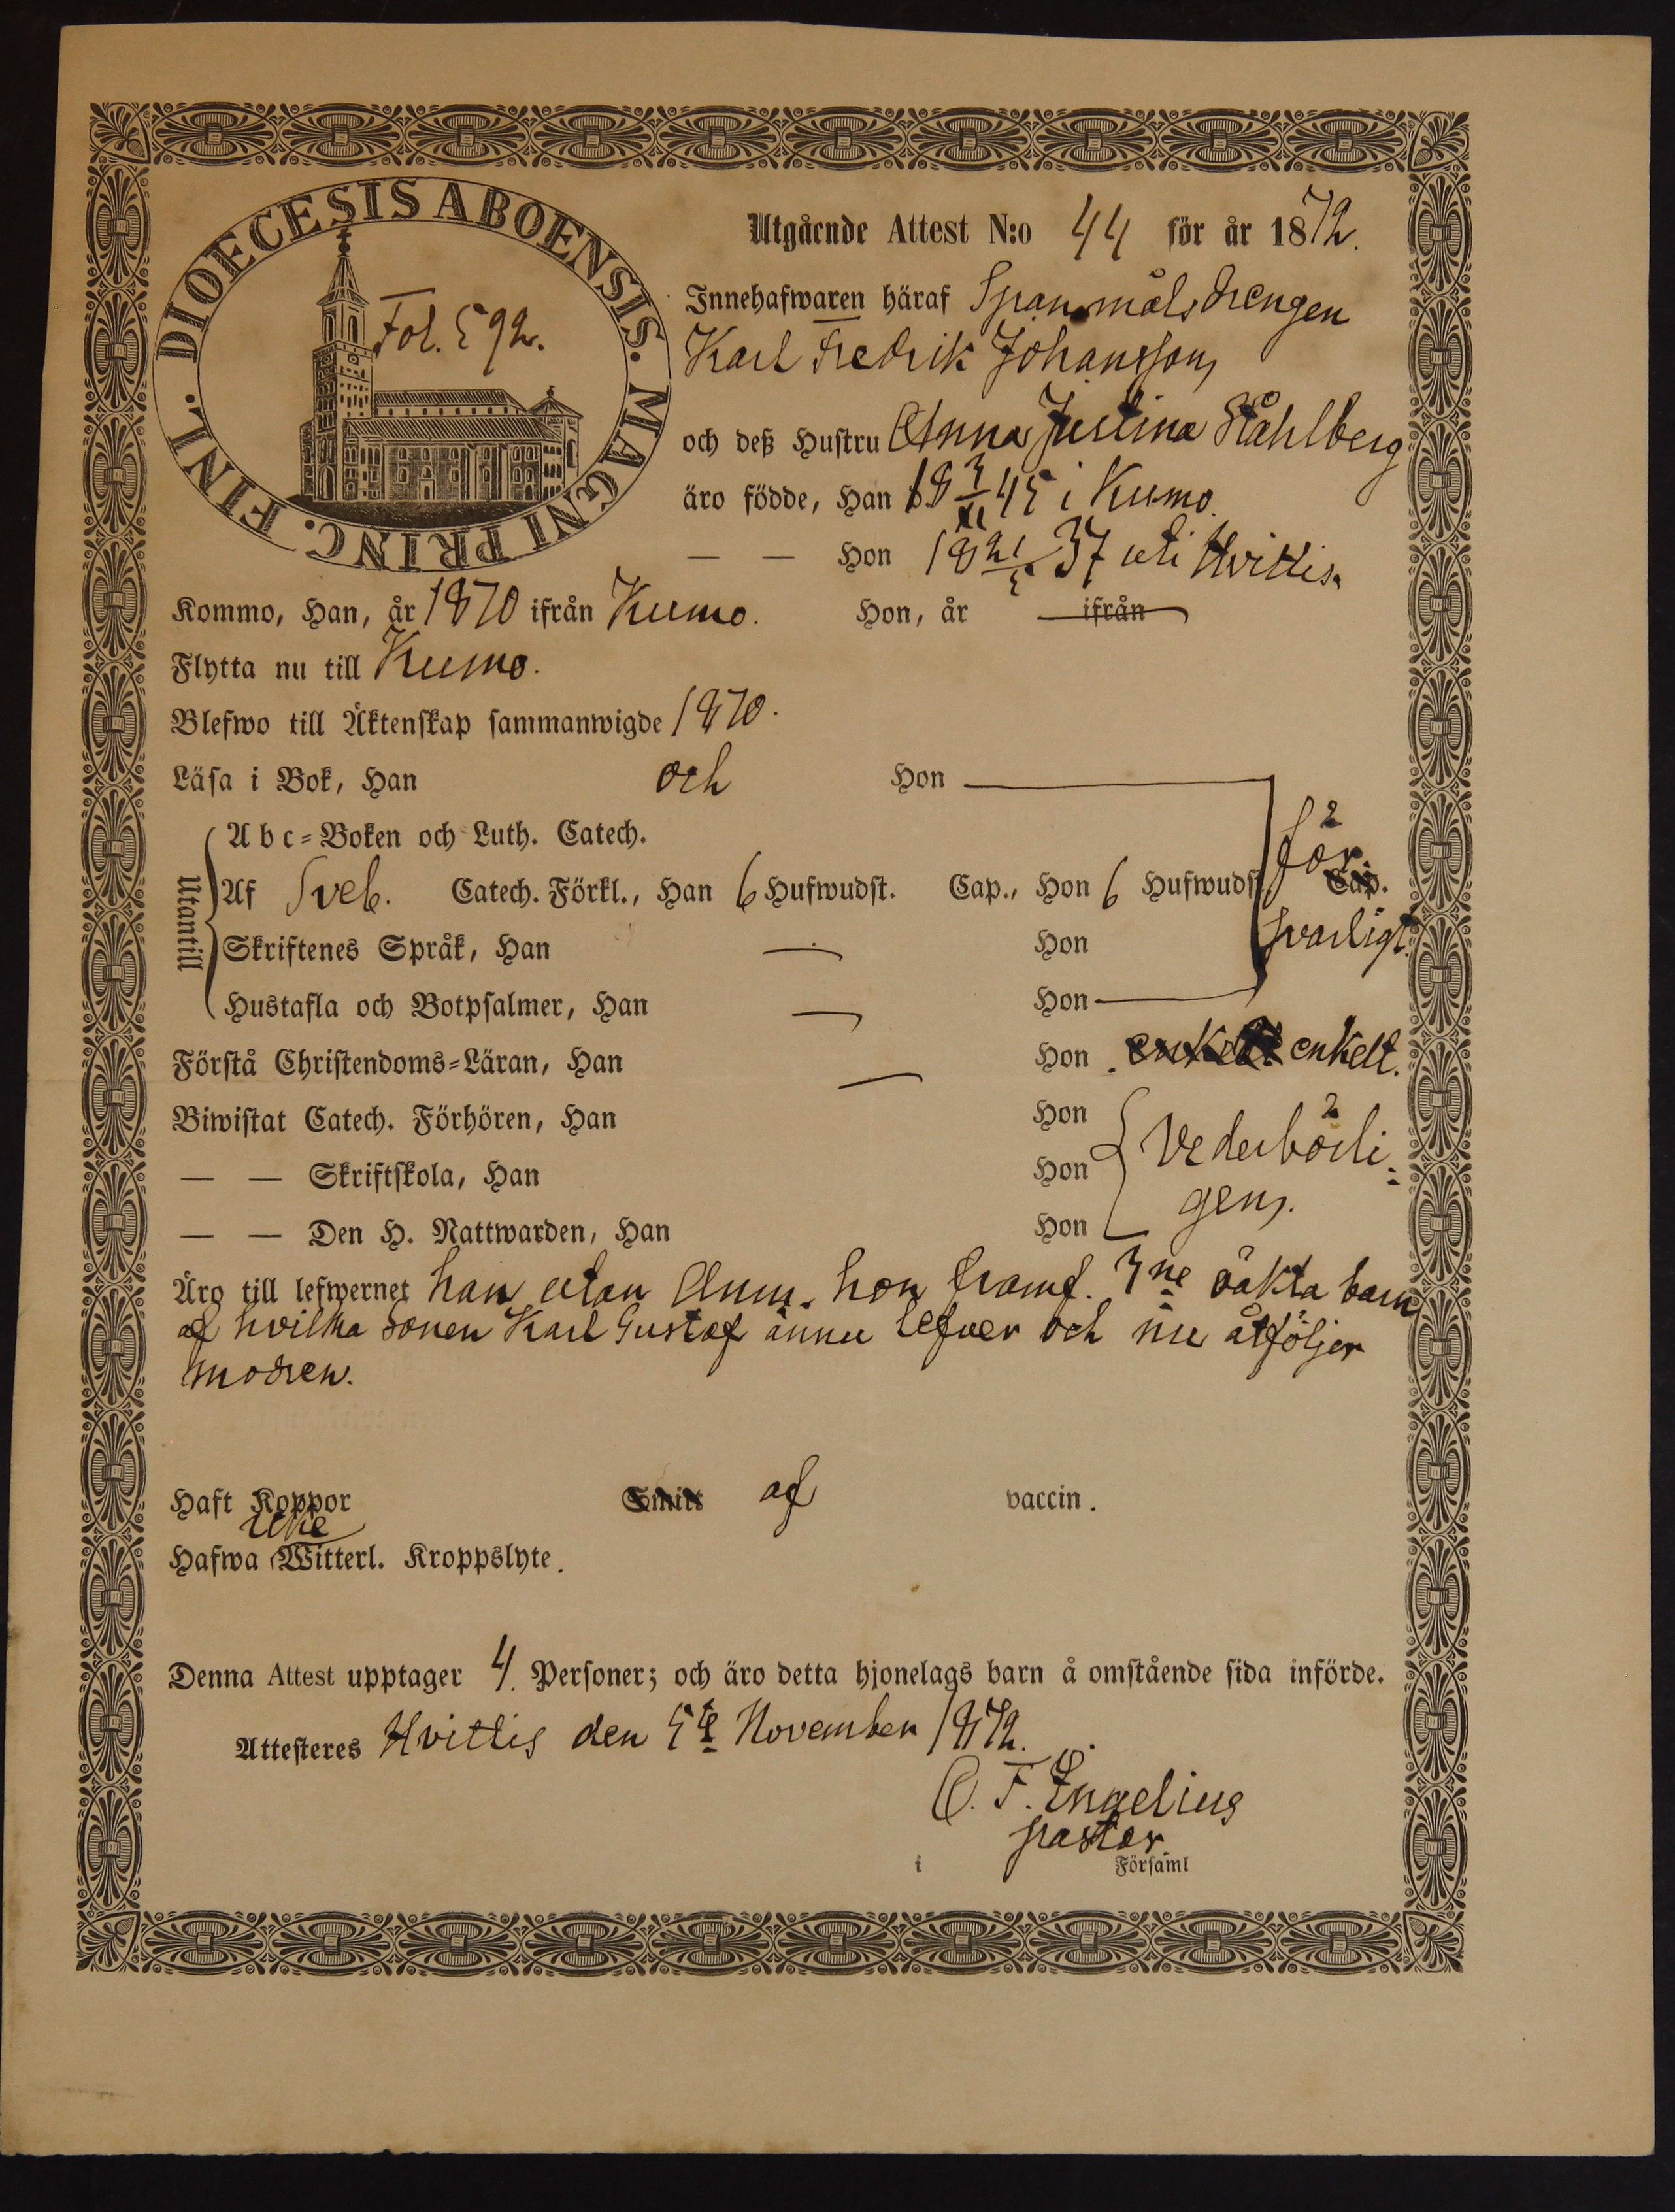 DIOECESIS ABOENSIS. MAGNI PRINC. FINL.
Fol. 592.
Utgående Attest N:o 44 för år 1872.
Innehafwaren häraf Spanmålsdrengen
Karl Fredrik Johansson
och deß Hustru Anna Justina Ståhlberg
äro födde, Han 18 3/XI 45 i Kumo.
— — Hon 18 21/5 37 uti Hvittis.
Kommo, Han, år 1870 ifrån Kumo. Hon, år ifrån
Flytta nu till Kumo.
Blefwo till Äktenskap sammanwigde 1870.
Läsa i Bok, Han och Hon
Abc-Boken och Luth. Catech.
Utantill
Af Sveb. Catech. Förkl., Han 6 Hufwudst. Cap., Hon 6 Hufwudst. Cap.
för
svarligt.
Skriftenes Språk, Han — Hon
Hustafla och Botpsalmer, Han — Hon
Förstå Christendoms-Läran, Han — Hon enkelt.
Biwistat Catech. Förhören, Han Hon
Vederbörli-
— — Skriftskola, Han Hon
gen.
— — Den H. Nattwarden, Han Hon
Äro till lefwernet han utan Anm. hon framf. 3ne oäkta barn
af hvilka sonen Karl Gustaf ännu lefver och nu åtföljer
modren.
Haft Koppor Smitt af vaccin.
icke
Hafwa Witterl. Kroppslyte.
Denna Attest upptager 4. Personer; och äro detta hjonelags barn å omstående sida införde.
Attesteres Hvittis den 5te November 1872.
C. F. Engelius
pastor
i Församl